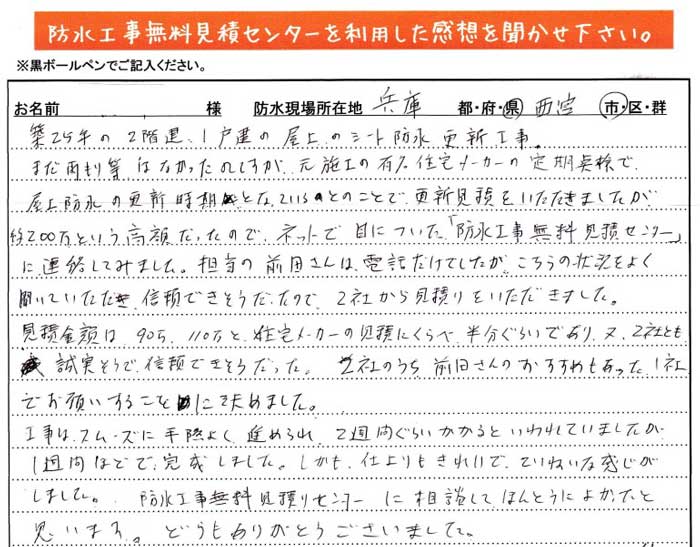 防水工事無料見積センターを利用した感想を聞かせ下さい。
※黒ボールペンでご記入ください。
お名前 様 防水現場所在地 兵庫 都・府・県 西宮 市・区・群
築25年の2階建、1戸建の屋上のシート防水更新工事。
まだ雨もり等はなかったのですが、元施工の有名住宅メーカーの定期点検で、
屋上防水の更新時期となっているとのことで、更新見積をいただきましたが
約200万という高額だったので、ネットで目についた「防水工事無料見積センター」
に連絡してみました。担当の前田さんは、電話だけでしたが、こちらの状況をよく
聞いていただき、信頼できそうだったので、2社から見積りをいただきました。
見積金額は、90万、110万と、住宅メーカーの見積にくらべ、半分ぐらいであり、又、2社とも
誠実そうで、信頼できそうだった。2社のうち、前田さんのおすすめもあった、1社
でお願いすることに決めました。
工事は、スムーズに手際よく進められ、2週間ぐらいかかるといわれていましたが、
1週間ほどで、完成しました。しかも、仕上りもきれいで、ていねいな感じが
しました。防水工事無料見積りセンターに相談してほんとうによかったと
思います。どうもありがとうございました。